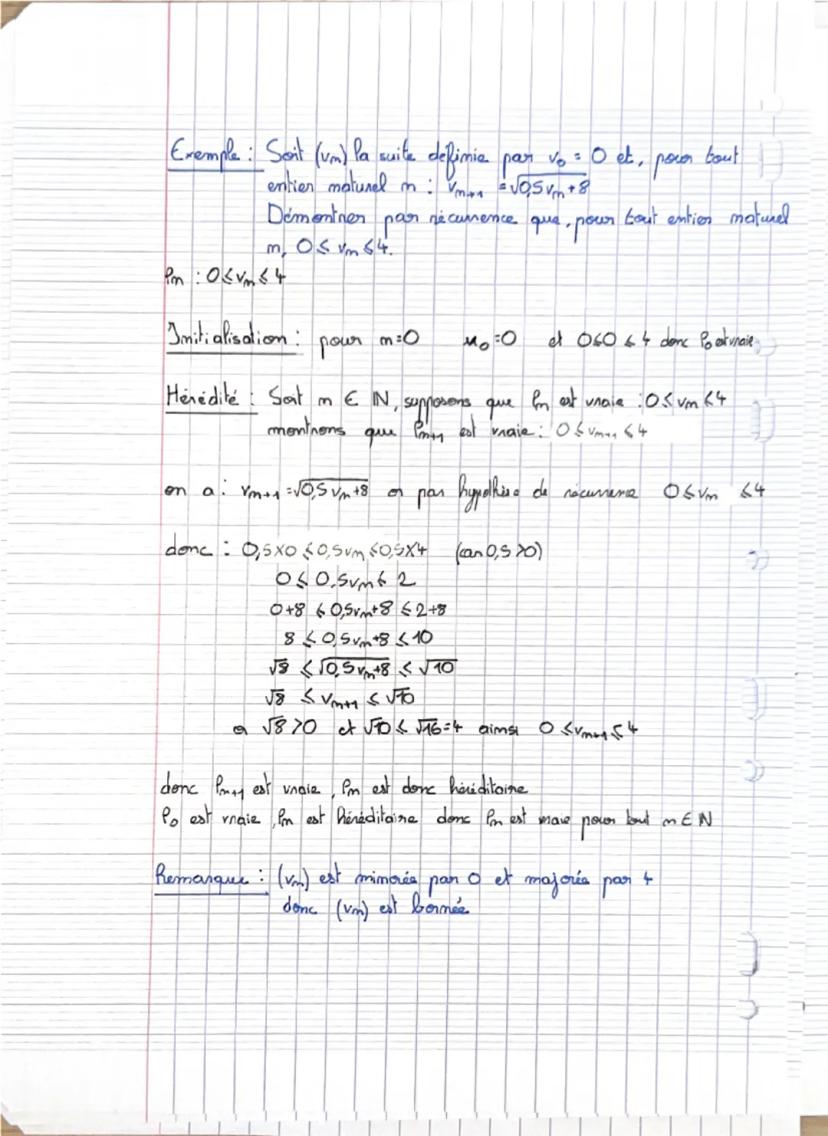 Exemple : Soit (vn) la suite définie par v0 = 0 et, pour tout
entier naturel n : vn+1 = √(0,5vn+8)
Démontrer par récurrence que, pour tout entier naturel
n, 0 ≤ vn ≤ 4.
Pn : 0 ≤ vn ≤ 4
Initialisation : pour n=0 u0=0 et 0≤0≤4 donc P0 est vraie
Hérédité : Soit n ∈ IN, supposons que Pn est vraie : 0 ≤ vn ≤ 4
montrons que Pn+1 est vraie : 0 ≤ vn+1 ≤ 4
on a : vn+1 = √(0,5vn+8) or par hypothèse de récurrence 0 ≤ vn ≤ 4
donc : 0,5×0 ≤ 0,5vn ≤ 0,5×4 (car 0,5>0)
0 ≤ 0,5vn ≤ 2
0+8 ≤ 0,5vn+8 ≤ 2+8
8 ≤ 0,5vn+8 ≤ 10
√8 ≤ √(0,5vn+8) ≤ √10
√8 ≤ vn+1 ≤ √10
or √8>0 et √10 ≤ √16=4 ainsi 0 ≤ vn+1 ≤ 4
donc Pn+1 est vraie, Pn est donc héréditaire
P0 est vraie, Pn est héréditaire donc Pn est vraie pour tout n ∈ N
Remarque : (vn) est minorée par 0 et majorée par 4
donc (vn) est bornée